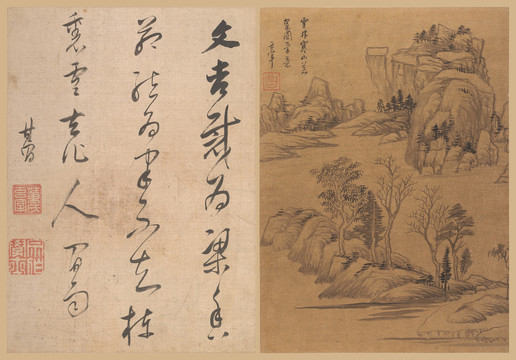 文杏裁為梁香
茅結為宇不知棟
裏雲去作人間雨
其昌
雲林寒山
玄宰